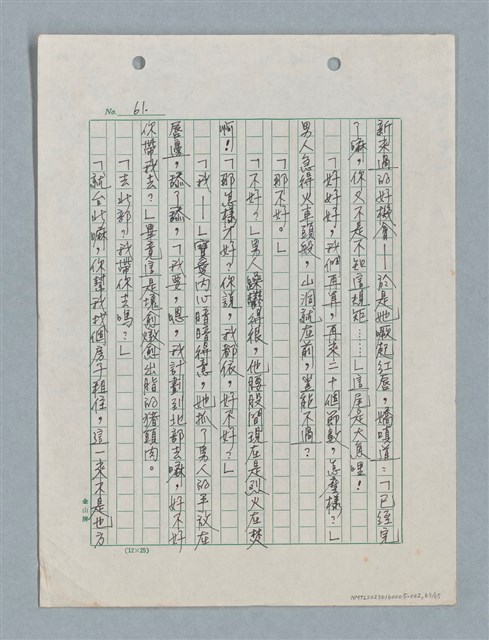 No. 61.
新來過的好機會——於是她噘起紅唇,嬌嗔道:「已經完
了嘛,你又不是不知這規矩……」這尾是大魚哩!
「好好好,我們再算,再來二十個節數,怎麼樣?」
男人急得火車頭般,山洞就在前,豈能不過?
「那不好。」
「不好?」男人躁鬱得很,他腰股間現在是烈火在焚
啊!「那怎樣才好?你說,我都依,好不好?」
「我——」寶愛內心暗暗得意,她抓了男人的手放在
唇邊,舔了舔,「我要,嗯,我計劃到北部去嘛,好不好
你帶我去?」畢竟這是壞愈燉愈出脂的豬頭肉。
「去北部?我帶你去嗎?」
「就台北嘛,你幫我找個房子租住,這一來不是也方
金山牌
(12×25)
NMTL20230160005-002,61/65